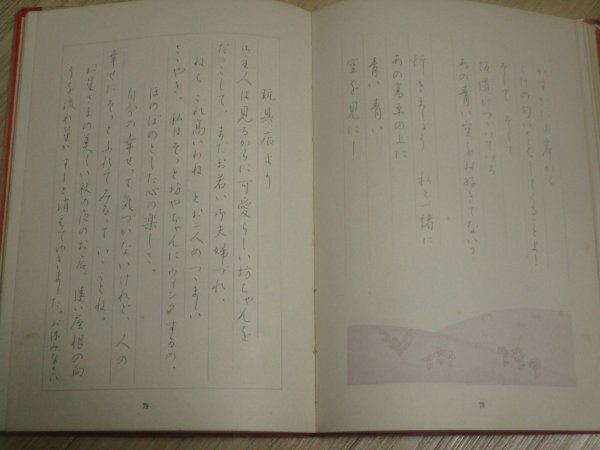 そして そして
坂道についたら
あの青い空をお好きでない?
行きましょう 私と一緒に
あの高原の上に
青い 青い
空を見に!
78
玩具店より
御主人は見るからに可愛らしい坊ちゃんを
だっこして、まだお若い御夫婦づれ、
ねえ これ高いわね とお二人のつゝましい
さゝやき、私はそっと坊やちゃんにウィンクするの。
ほのぼのとした心の楽しさ。
自分の幸せって気づかないけれど 人の
幸せにそっとふれてみるっていいことね。
お星さまの美しい秋の夜のお店 遠い屋根の向
うを流れ星がすーと消えてゆきました。お休みなさい
79